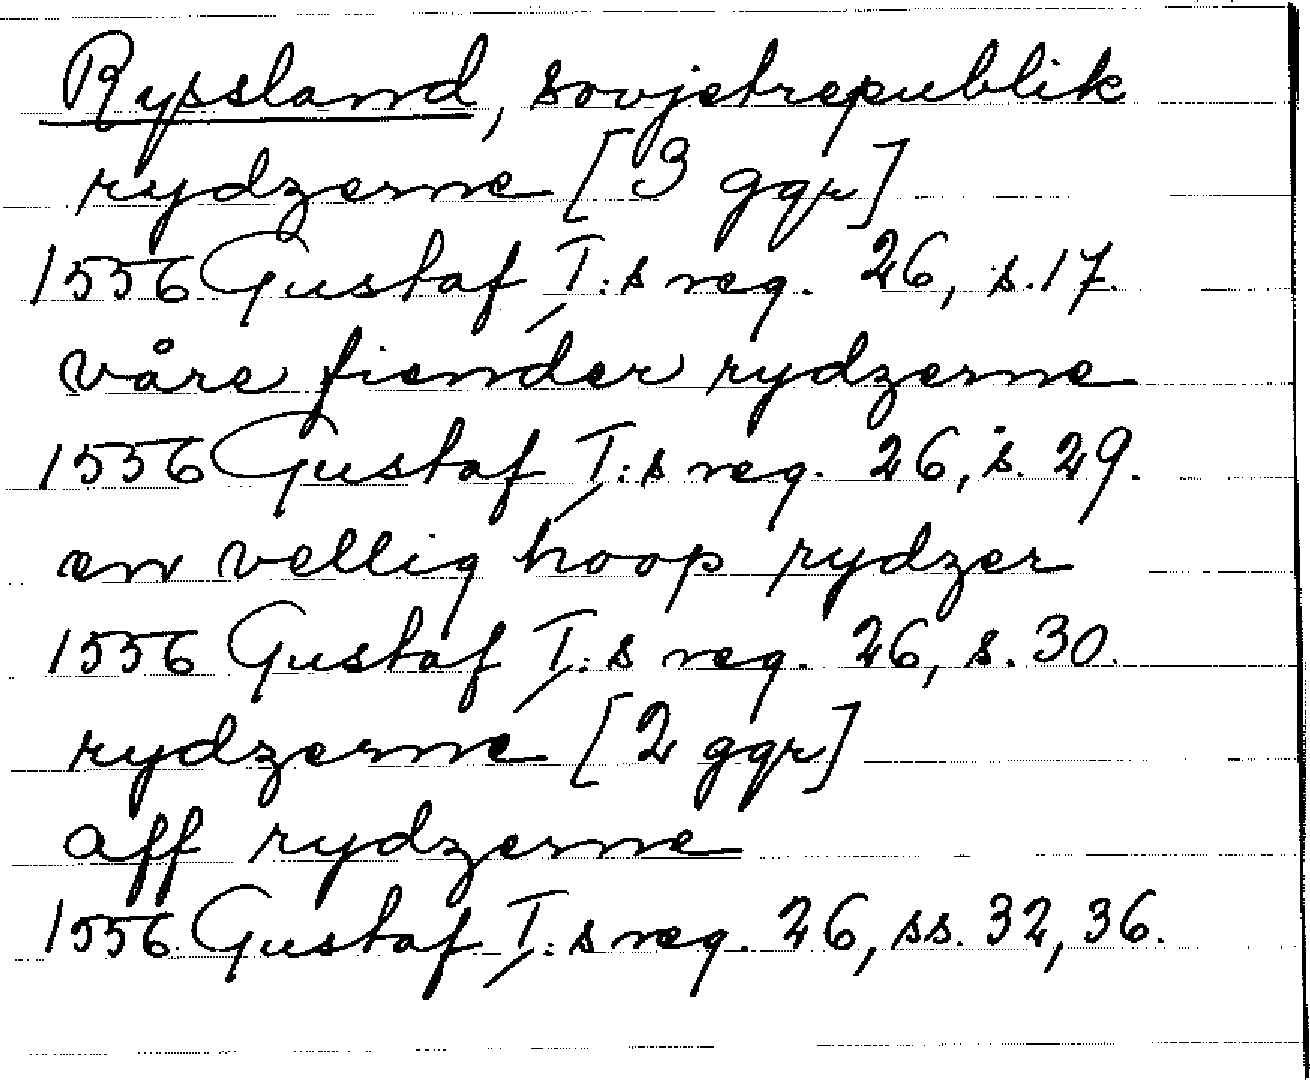 Ryssland, sovjetrepublik
rydzerne [3 ggr]
1556 Gustaf I:s reg. 26, s. 17.
våre fiender rydzerne
1556 Gustaf I:s reg. 26, s. 29.
en vellig hoop rydzer
1556 Gustaf I:s reg. 26, s. 30.
rydzerne [2 ggr]
aff rydzerne
1556 Gustaf I:s reg. 26, ss. 32, 36.